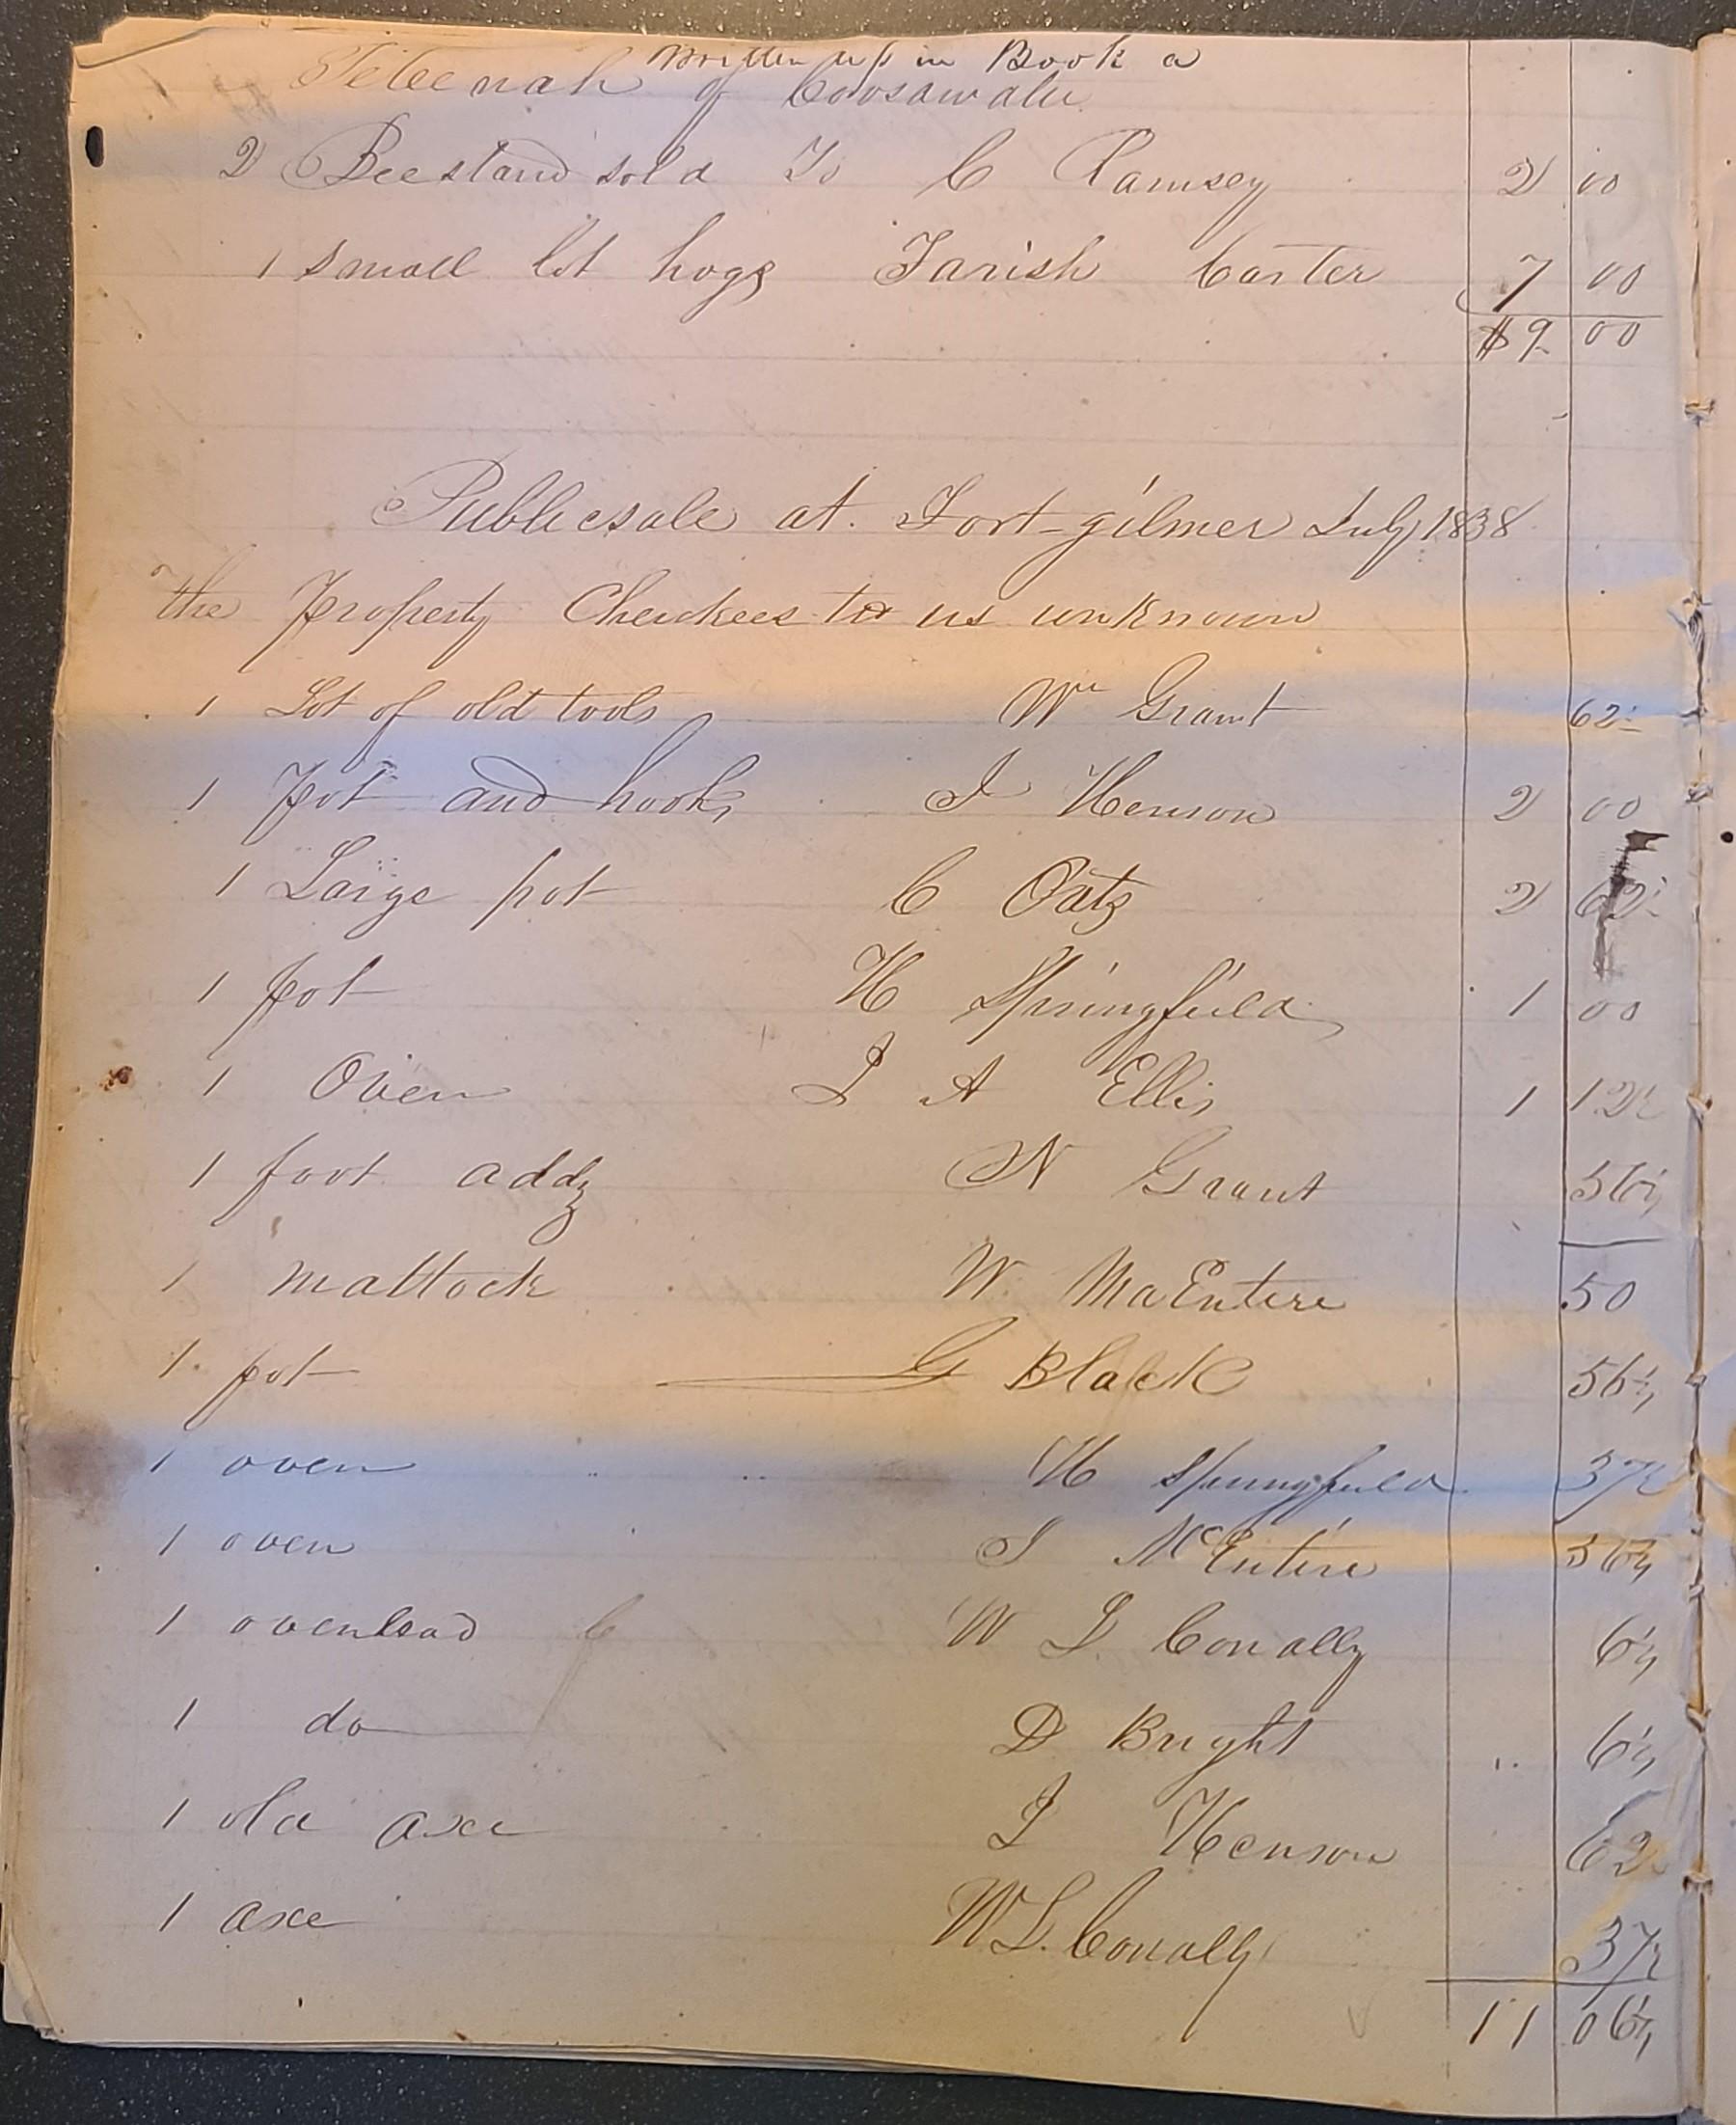 Written up in Book a
Teteenah of Coosawatu
2 Beestand sold To C Ramsey 2 00
1 small lot hogs Farish Carter 7 00
$9 00
Public sale at Fort gilmer July 1838
the Property Cherokees to us unknown
1 Lot of old tools Wm Grant 62½
1 pot and hooks J Henson 2 00
1 Large pot C Oatz 2 62½
1 pot H Springfield 1 00
1 Oven J A Ellis 1 12½
1 foot addz W Grant 56¼
1 mattock W MaEntire 50
1 pot G Black 56¼
1 oven H Springfield 37½
1 oven J McEntire 56¼
1 ovenlead W L Conally 6¼
1 do D Bright 6¼
1 old axe J Henson 62½
1 axe W L. Conally 37½
11 06¼